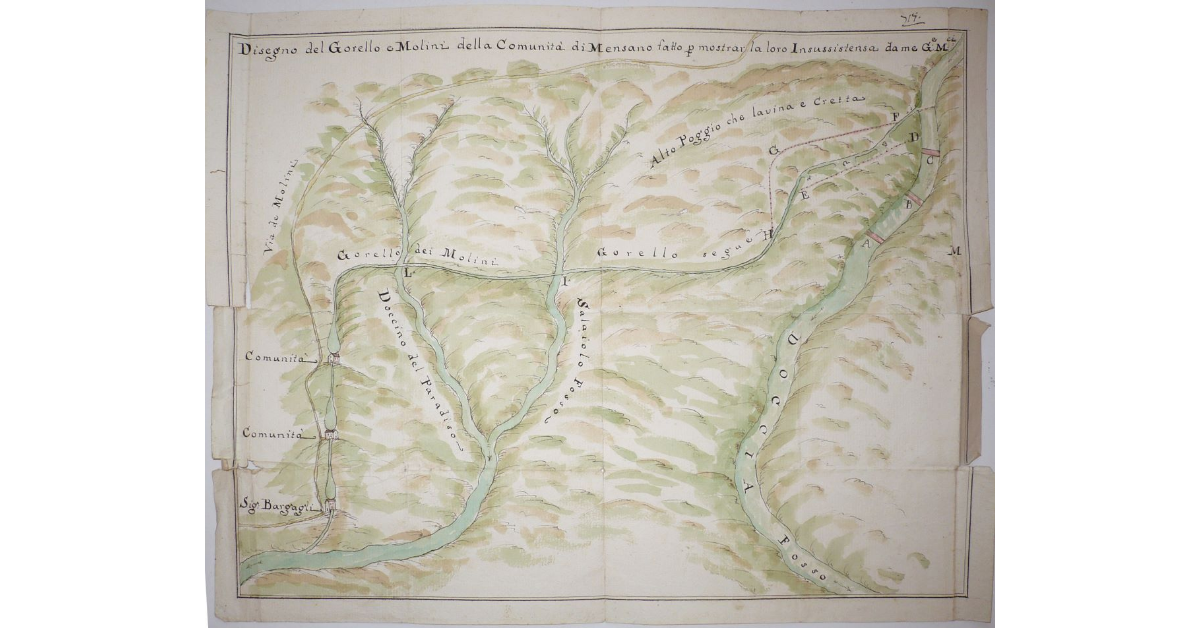 Disegno del Gorello e Molini della Comunità di Mensano fatto p mostrar la loro Insussistensa da me
Alto Poggio che lavina e Cretta
F
D
G
C
Via de Molini
E
B
H
A
M
Gorello dei Molini
Gorello segue
L
I
Doccino del Paradiso
Salaiolo Fosso
DOCCIA Fosso
Comunità
Comunità
Sig. Bargagli